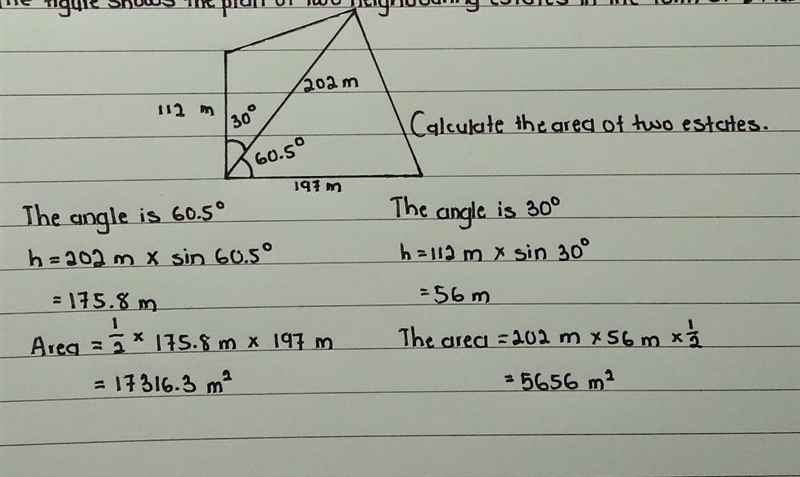 figure shows the plan of two neighbouring estates in the form of
112 m
30°
202 m
60.5°
197 m
Calculate the area of two estates.
The angle is 60.5°
h = 202 m × sin 60.5°
= 175.8 m
Area = 1/2 × 175.8 m × 197 m
= 17316.3 m²
The angle is 30°
h = 112 m × sin 30°
= 56 m
The area = 202 m × 56 m × 1/2
= 5656 m²